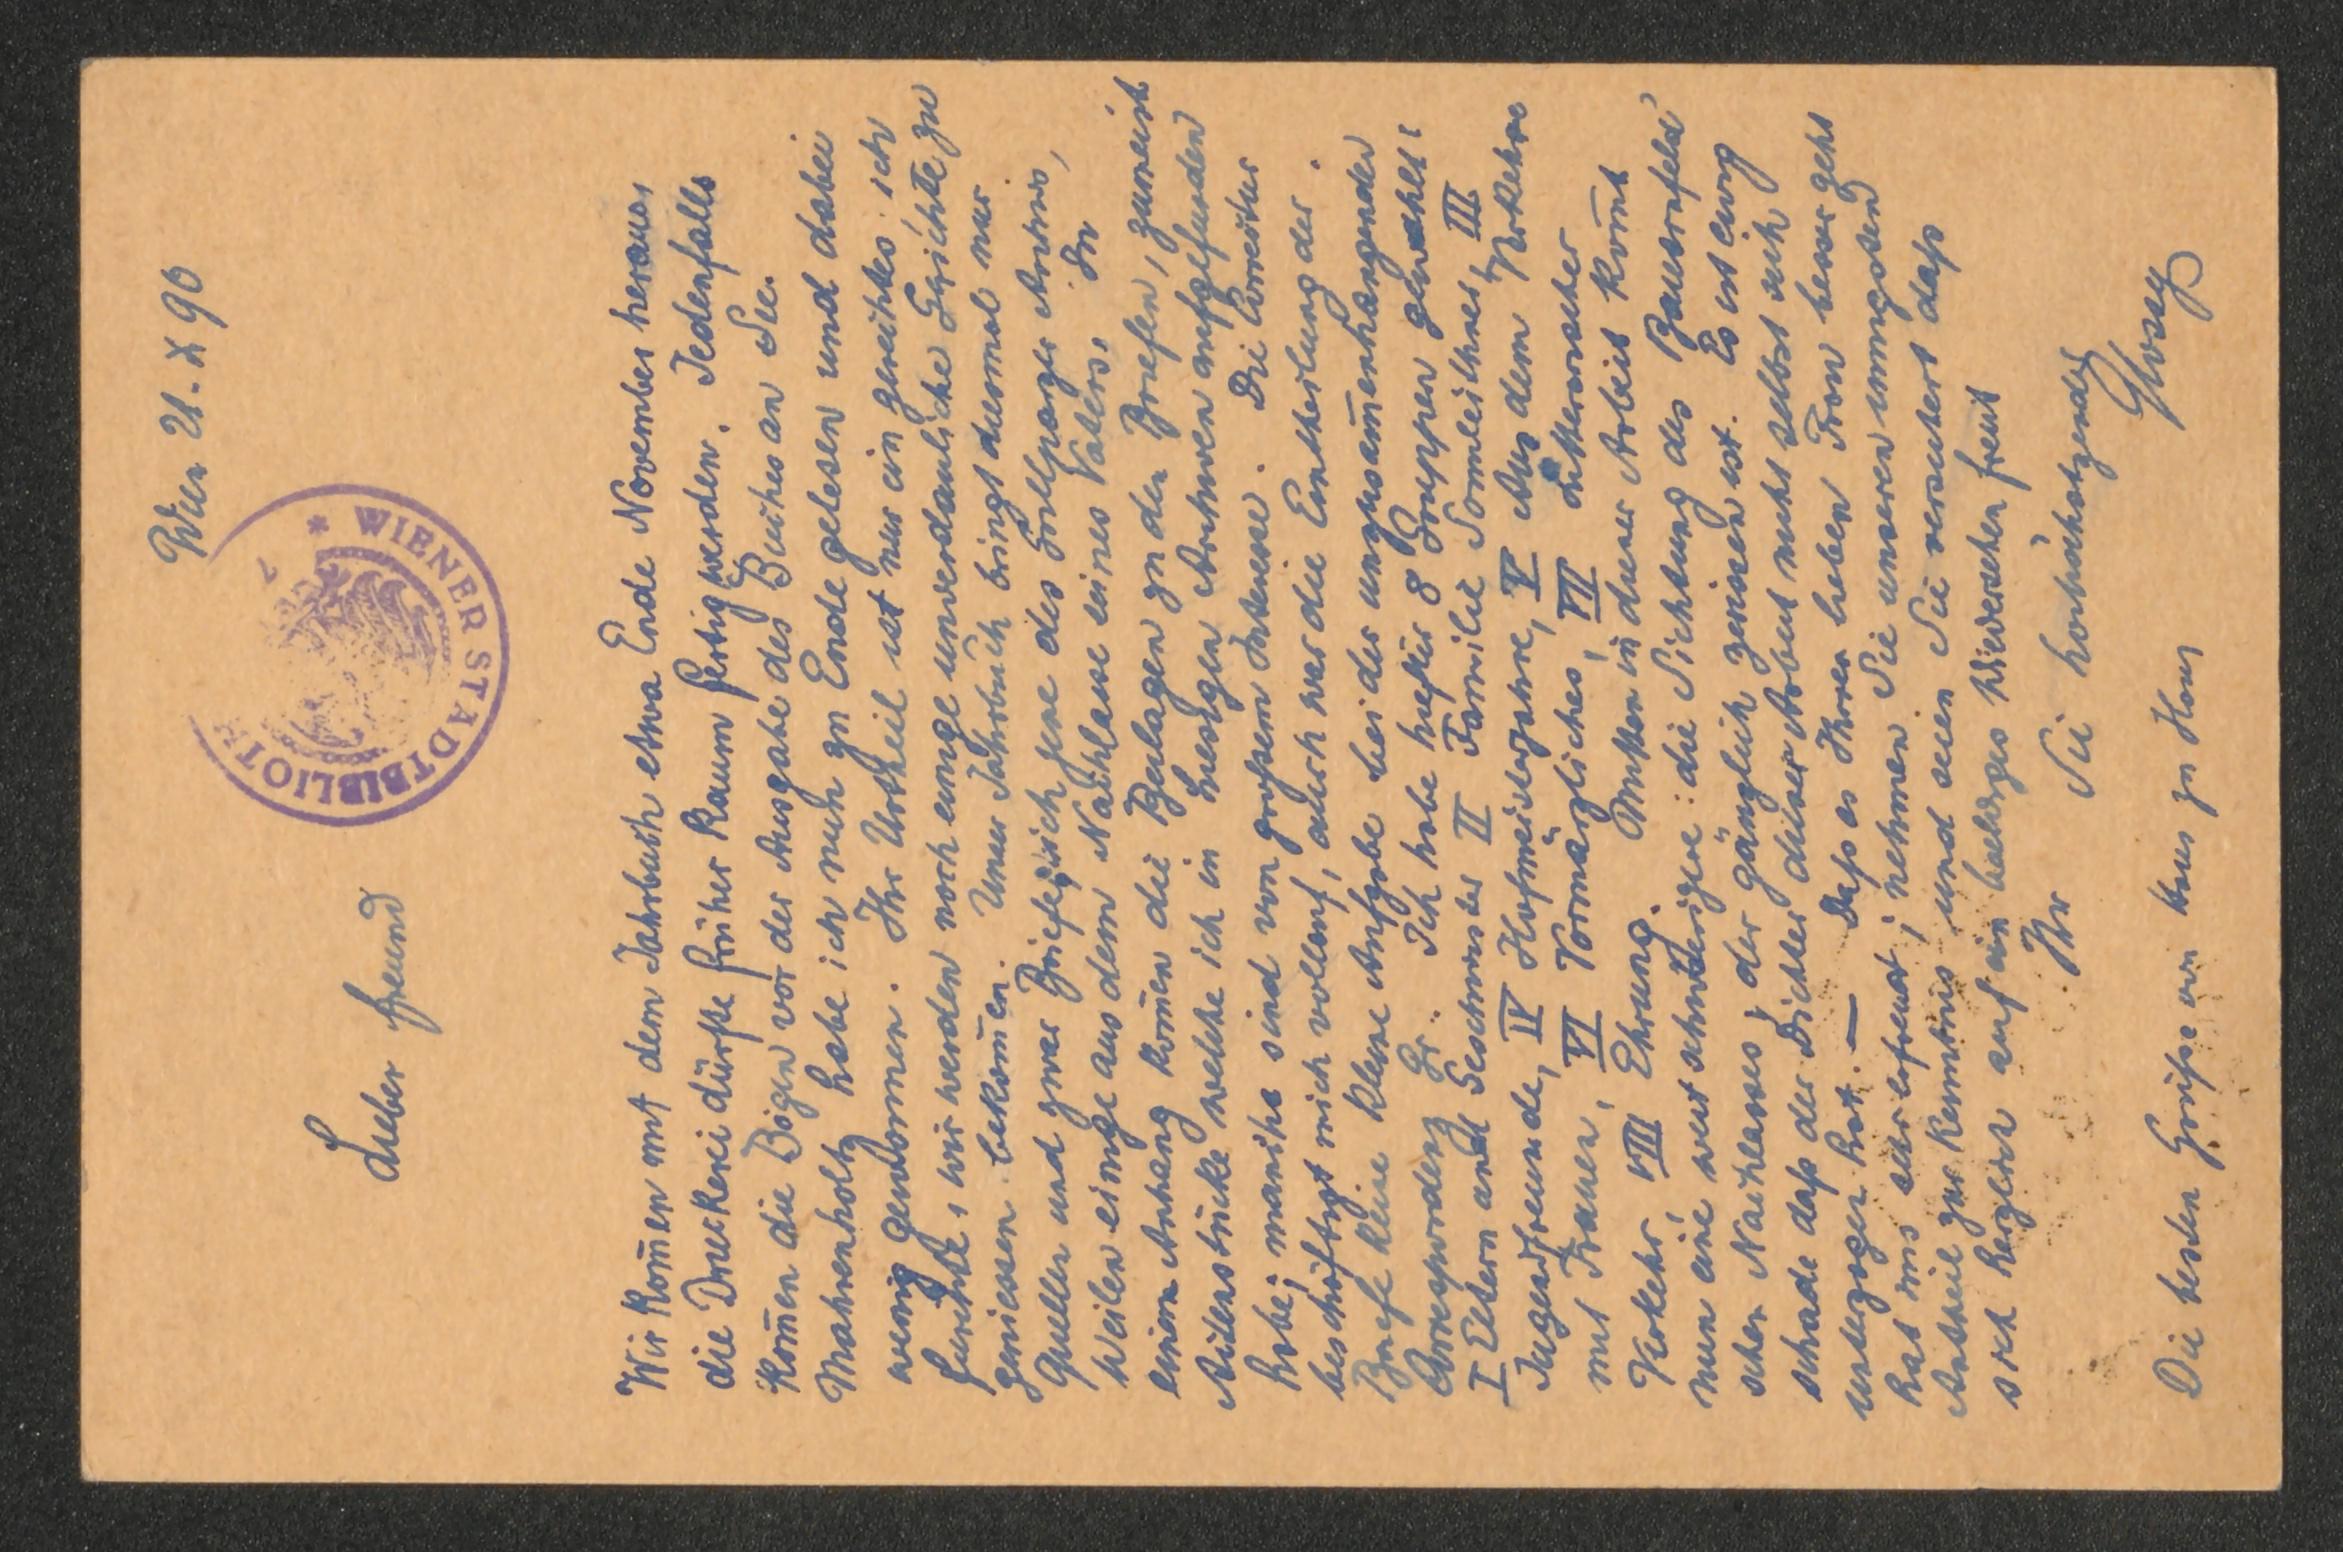 Wien 21. X 90
WIENER STADTBIBLIOTH
Lieber Freund
Wir kom̄en mit dem Jahrbuch etwa Ende November heraus,
die Druckerei dürfte früher kaum fertig werden. Jedenfalls
kom̄en die Bögen vor der Ausgabe des Buches an Sie.
Mahrenholtz habe ich nun zu Ende gelesen und dabei
wenig gewonnen. Ihr Urtheil ist nur ein gerechtes; ich
fürchte, wir werden noch einige unverdauliche Gerichte zu
geniessen bekom̄en. Unser Jahrbuch bringt diesmal nur
Quellen und zwar Briefe, jene des Grillparzer Archivs,
Weilen einige aus dem Nachlasse seines Vaters. In
einem Anhang kom̄en die Beilagen zu den Briefen, zumeist
Actenstücke welche ich in hiesigen Archiven aufgefunden
habe; manche sind von großem Interesse. Die Correctur
beschäftigt mich vollauf, auch war die Eintheilung der
Briefe keine kleine Aufgabe bei der unzusam̄enhängenden
Correspondenz Gr. Ich habe hiefür 8 Gruppen gewählt:
I Eltern und Geschwister II Familie Sonnleithner, III
Jugendfreunde, IV Hofmeisterjahre, V Aus dem Verkehre
mit Frauen, VI Vormärzliches, VII Litterarischer
Verkehr, VIII Ehrung. Mitten in dieser Arbeit kom̄t
nun eine weit schwierigere: die Sichtung des Bauernfeld'
schen Nachlasses, der gänglich zerrissen ist. Es ist ewig
schade daß der Dichter dieser Arbeit nicht selbst sich
unterzogen hat. — Daß es Ihrer lieben Frau besser geht
hat uns sehr erfreut, nehmen Sie unseren innigsten
Antheil zur Kenntnis und seien Sie versichert daß
sich herzlich auf ein baldiges Wiedersehen freut
Ihr Sie hochschätzender
Glossy
Die besten Grüße von Haus zu Haus